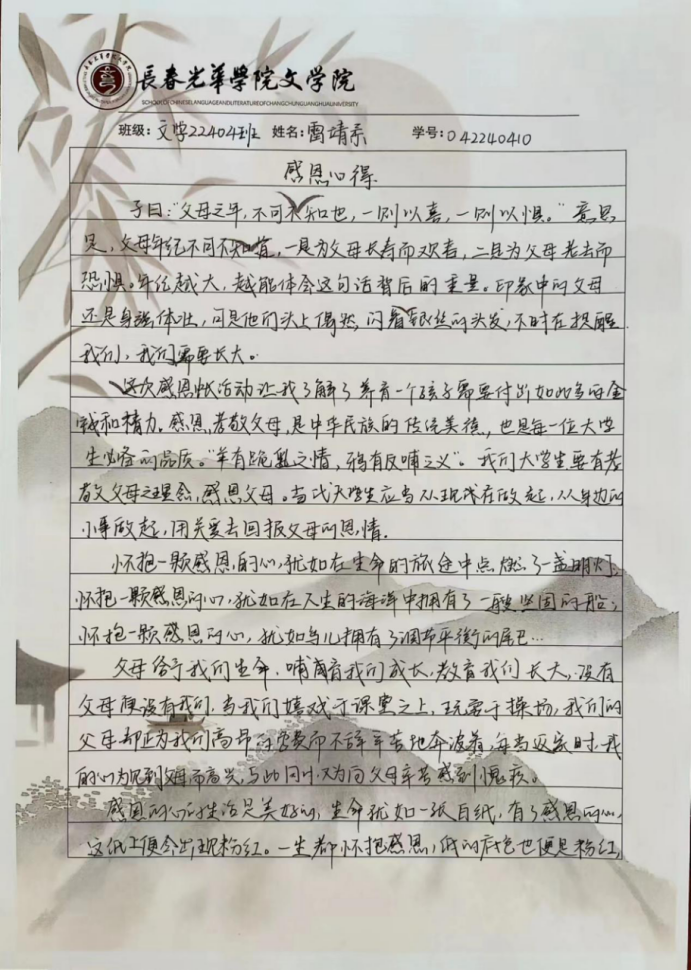 長春光華學院文学院
SCHOOL OF CHINESE LANGUAGE AND LITERATURE OF CHANGCHUN GUANGHUA UNIVERSITY
班级：文学22404班 姓名：雷靖 学号：042240410
感恩心得
子曰："父母之年，不可不知也，一则以喜，一则以惧。"意思
是，父母年纪不可不知道，一是为父母长寿而欢喜，二是为父母老去而
恐惧。年纪越大，越能体会这句话背后的重量。印象中的父母
还是身强体壮，可是他们头上偶然闪着银丝的头发，不时在提醒
我们，我们需要长大。
这次感恩帐活动让我了解了养育一个孩子需要付出如此多的金
钱和精力。感恩、孝敬父母，是中华民族的传统美德，也是每一位大学
生必备的品质。"羊有跪乳之情，鸦有反哺之义"。我们大学生要有孝
敬父母之理念，感恩父母。当代大学生应当从现在做起，从身边的
小事做起，用关爱去回报父母的恩情。
怀抱一颗感恩的心，犹如在生命的旅途中点燃了一盏明灯；
怀抱一颗感恩的心，犹如在人生的海洋中拥有了一艘坚固的船；
怀抱一颗感恩的心，犹如鸟儿拥有了调节平衡的尾巴…
父母给予我们生命，哺育我们成长，教育我们长大，没有
父母便没有我们，当我们嬉戏于课堂之上，玩耍于操场，我们的
父母却正为我们高昂的学费而不辞辛苦地奔波着，每当返家时，我
们为见到父母而高兴，与此同时又为父母辛苦感到愧疚。
感恩的心的生活是美好的，生命犹如一纸白纸，有了感恩的心，
这纸上便会出现粉红。一生都怀抱感恩，纸的底色也便是粉红，